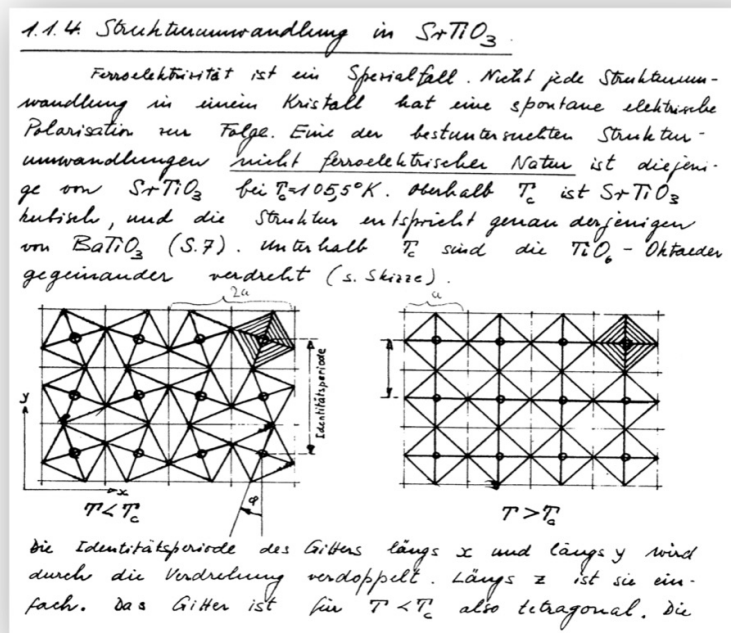 1.1.4. Strukturumwandlung in SrTiO₃.
Ferroelektrizität ist ein Spezialfall. Nicht jede Strukturum-
wandlung in einem Kristall hat eine spontane elektrische
Polarisation zur Folge. Eine der bestuntersuchten Struktur-
umwandlungen nicht ferroelektrischer Natur ist diejeni-
ge von SrTiO₃ bei Tc=105,5°K. Oberhalb Tc ist SrTiO₃
kubisch, und die Struktur entspricht genau derjenigen
von BaTiO₃ (S.7). Unterhalb Tc sind die TiO₆-Oktaeder
gegeneinander verdreht (s. Skizze).
2a
a
Identitätsperiode
y
x
T<Tc
φ
T>Tc
Die Identitätsperiode des Gitters längs x und längs y wird
durch die Verdrehung verdoppelt. Längs z ist sie ein-
fach. Das Gitter ist für T<Tc also tetragonal. Die